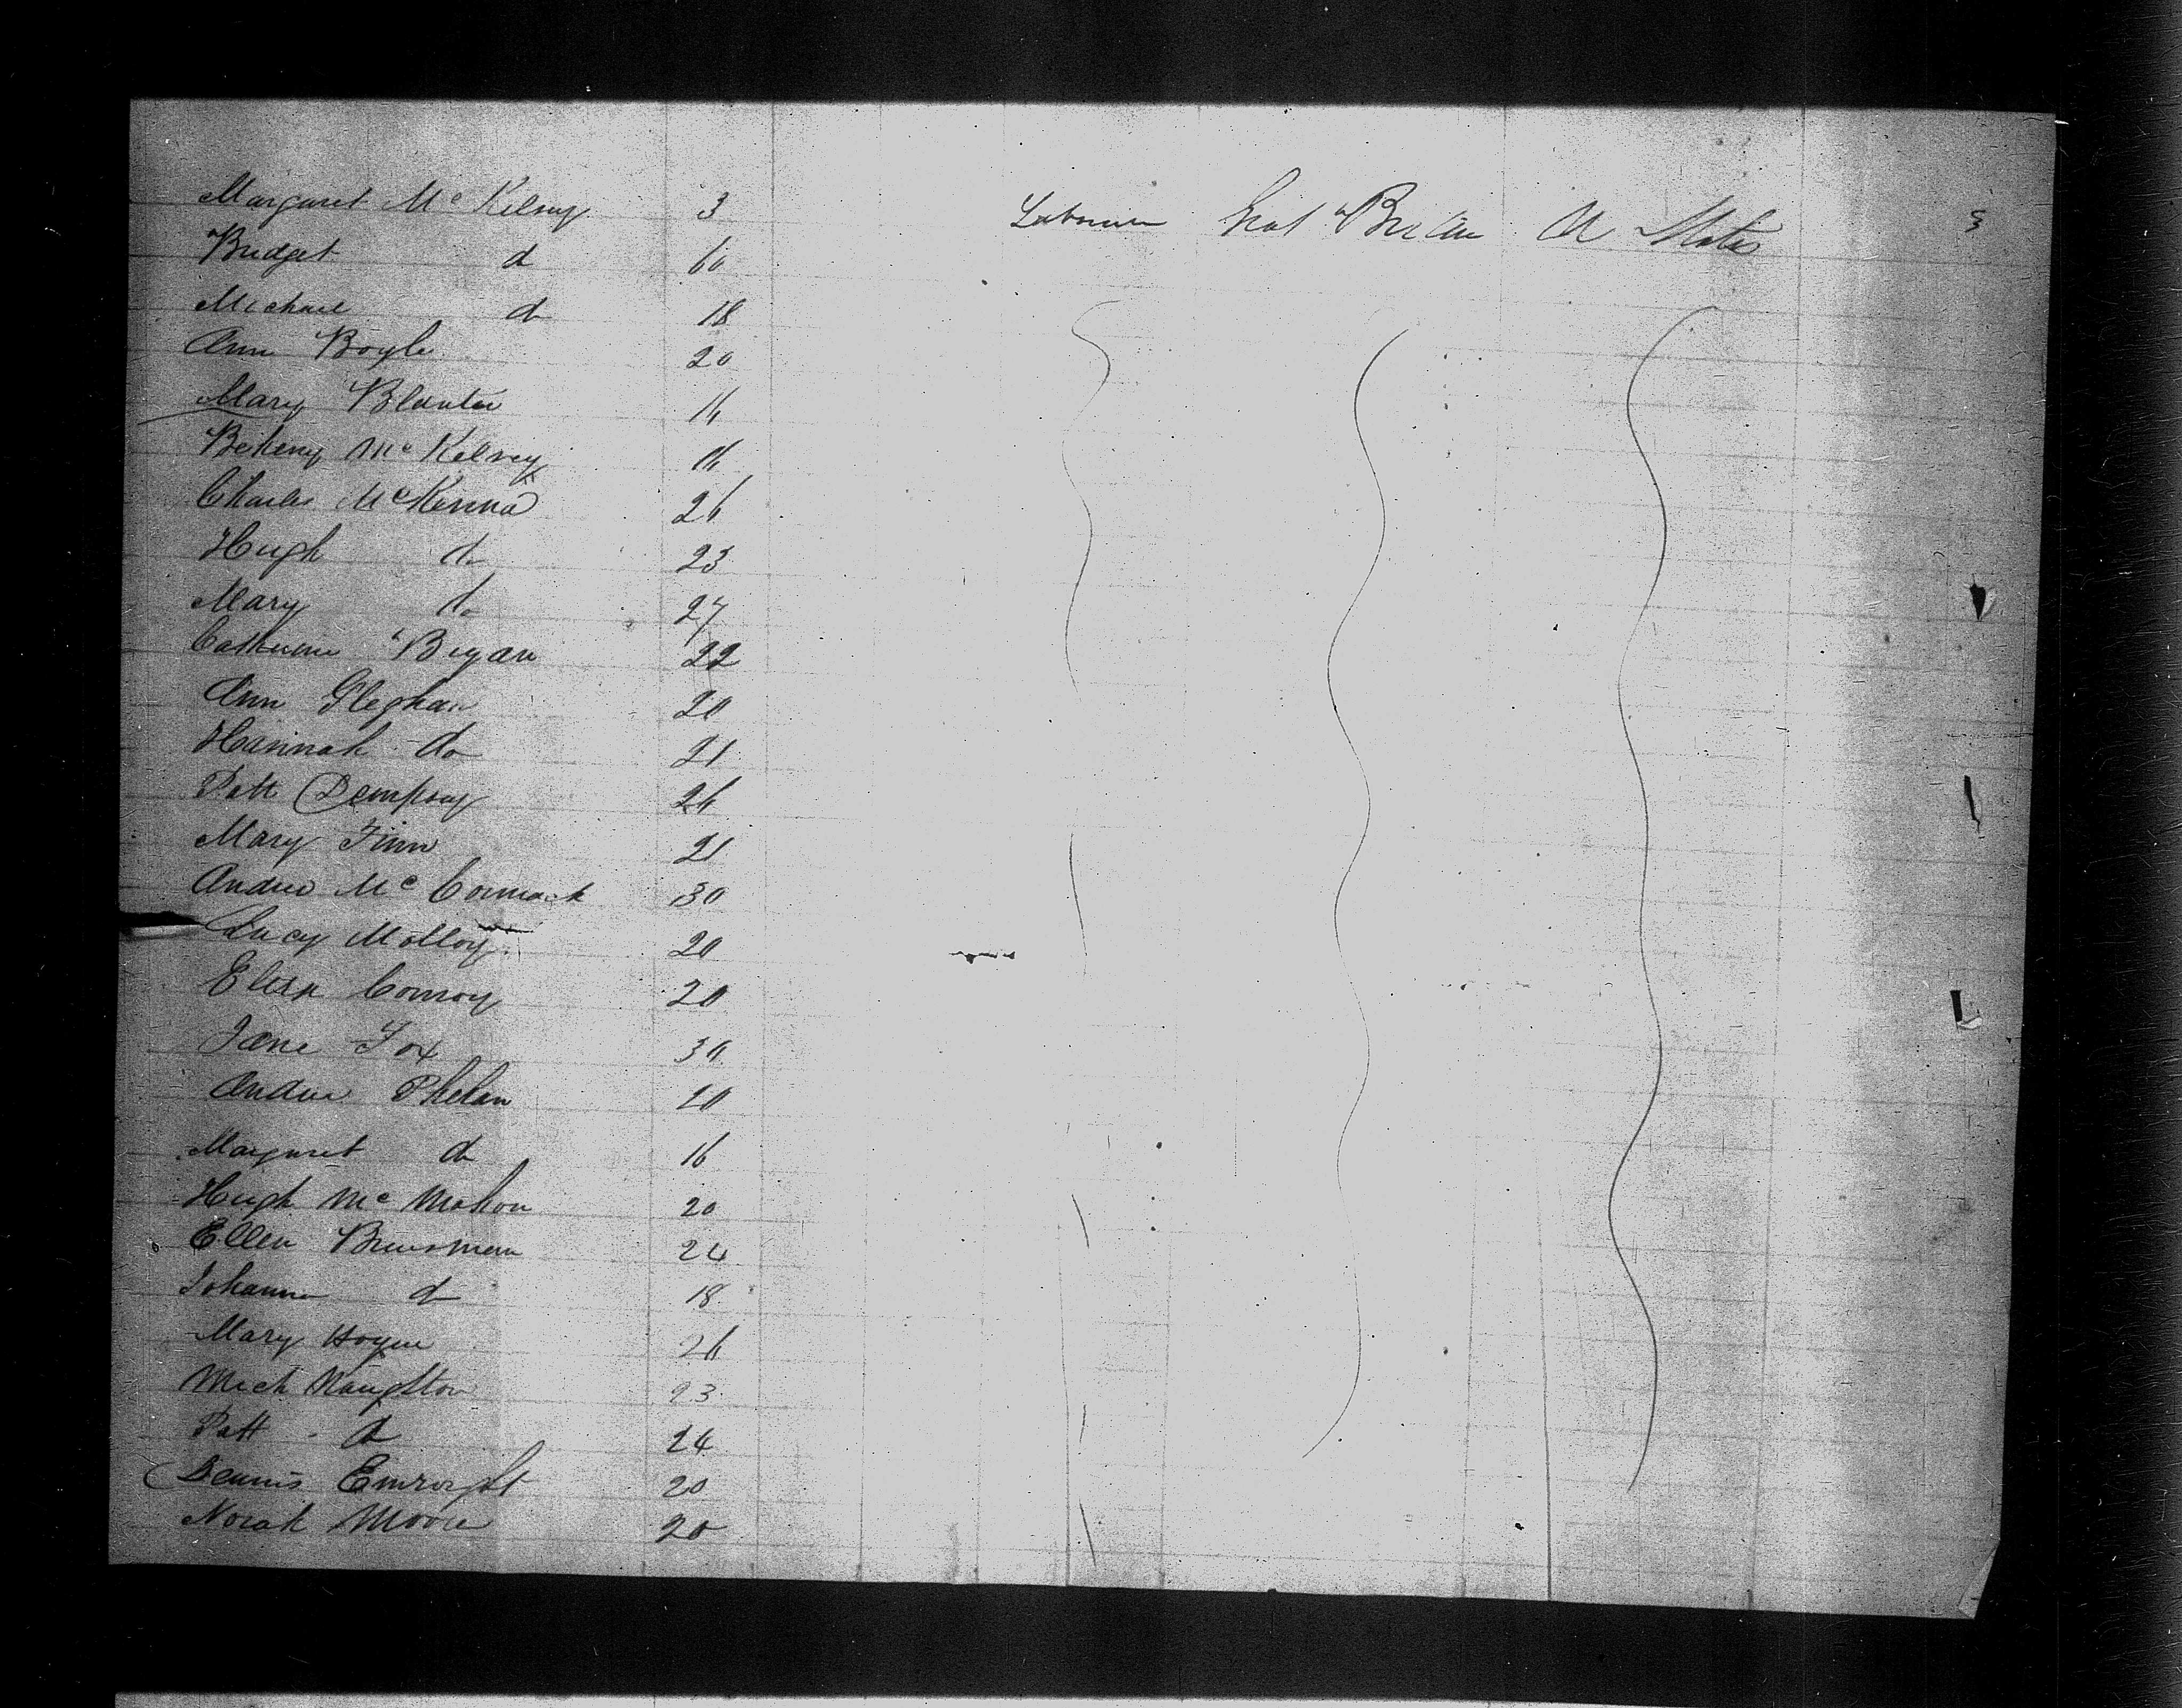 Margaret Mc Kelvey 3 Labourer Great Britain U States
Bridget d 60
Michael d 18
Ann Boyle 20
Mary 16
Mc Kelvey
Charles McKenna 26
Hugh do 23
Mary do 27
Catherine Bryan 22
Ann Gleghan 20
Hannah do 21
Patt Dempsey 26
Mary Finn 21
Andrew Mc Cormack 30
Lucy Molloy 20
Eliza Conroy 20
Jane Fox 30
Andrew Phelan 20
Margaret do 16
Hugh Mc Mahon 20
Ellen 24
Johanna d 18
Mary 26
Mich Naughton 23
Patt - d 24
Dennis Enright 20
Norah Moore 20